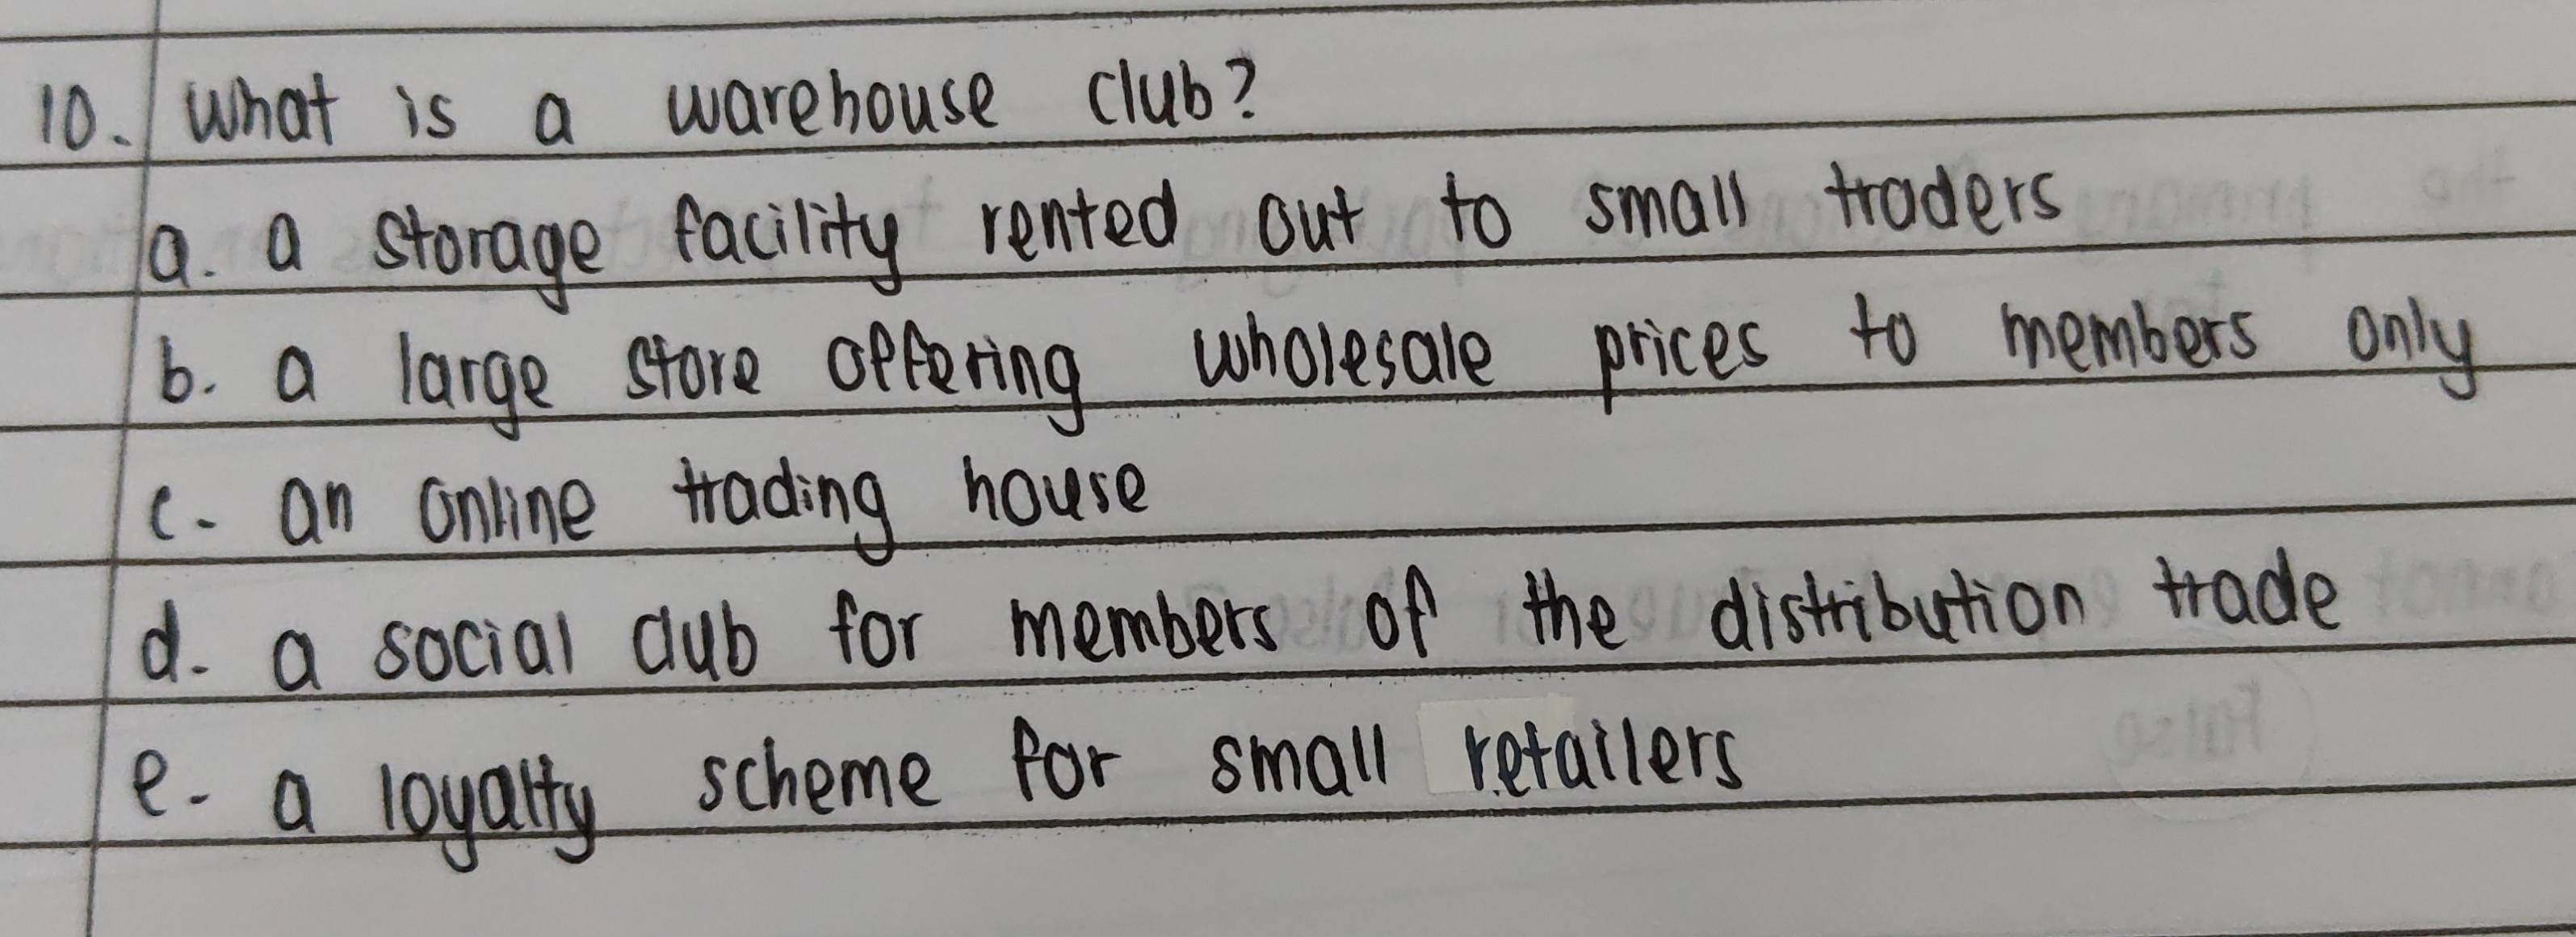 10. What is a warehouse club?
a. a storage facility rented out to small traders
b. a large store offering wholesale prices to members only
c. an online trading house
d. a social club for members of the distribution trade
e. a loyalty scheme for small retailers